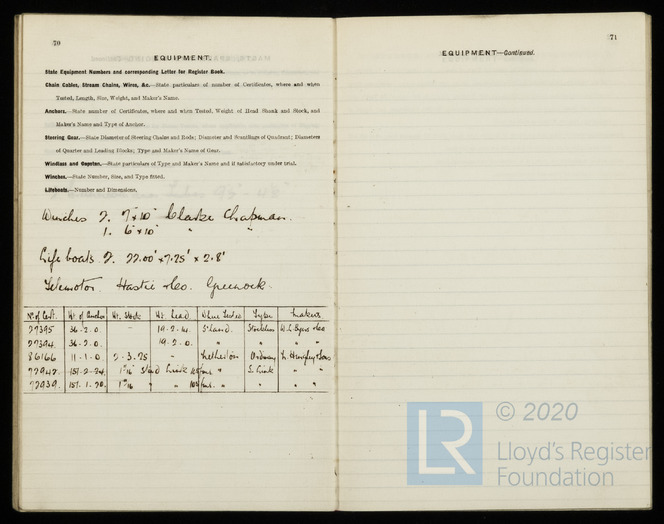 70
EQUIPMENT.
State Equipment Numbers and corresponding Letter for Register Book.
Chain Cables, Stream Chains, Wires, &c.—State particulars of number of Certificates, where and when
Tested, Length, Size, Weight, and Maker's Name.
Anchors.—State number of Certificates, where and when Tested, Weight of Head Shank and Stock, and
Maker's Name and Type of Anchor.
Steering Gear.—State Diameter of Steering Chains and Rods; Diameter and Scantlings of Quadrant; Diameters
of Quarter and Leading Blocks; Type and Maker's Name of Gear.
Windlass and Capstan.—State particulars of Type and Maker's Name and if satisfactory under trial.
Winches.—State Number, Size, and Type fitted.
Lifeboats.—Number and Dimensions.
Winches 2. 7"x10" Clarke Chapman.
1. 6"x10" " "
Life boats 2. 22.00' x 7.25' x 2.8'
Telemotor. Hastie & Co. Greenock.
No of Cert. Wt. of Anchor Wt. Stock Wt. Head Where Tested Type Makers
22395 36-2-0. - 19-2-14. S'land. Stockless W.L. Byers & Co
22394 36-2-0. 19-2-0. " " "
86166 11-1-0. 2-3-25 " Netherton Ordinary " "
22942 157-2-24. Stud Link " S. Link " "
22939. 157-1-20. " " " "
71
EQUIPMENT—Continued.
© 2020
LR
Lloyd's Register
Foundation